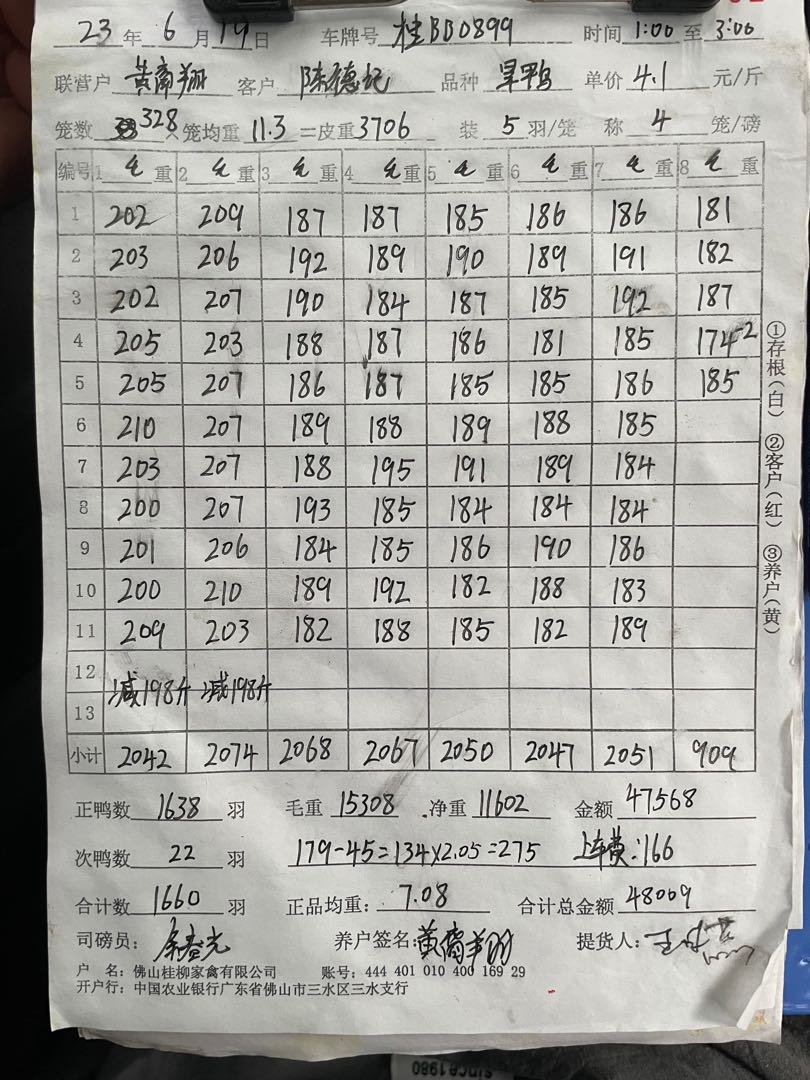 23 年 6 月 19 日 车牌号 桂BB0899 时间 1:00 至 3:00
联营户 黄南翔 客户 陈德记 品种 旱鸭 单价 4.1 元/斤
笼数 328 × 笼均重 11.3 = 皮重 3706 装 5 羽/笼 称 4 笼/磅
编号 1 毛 重 2 毛 重 3 毛 重 4 毛 重 5 毛 重 6 毛 重 7 毛 重 8 毛 重
1 202 209 187 187 185 186 186 181
2 203 206 192 189 190 189 191 182
3 202 207 190 184 187 185 192 187
4 205 203 188 187 186 181 185 174-2
5 205 207 186 187 185 185 186 185
6 210 207 189 188 189 188 185
7 203 207 188 195 191 189 184
8 200 207 193 185 184 184 184
9 201 206 184 185 186 190 186
10 200 210 189 192 182 188 183
11 209 203 182 188 185 182 189
12
减198斤 减198斤
13
小计 2042 2074 2068 2067 2050 2047 2051 909
①存根(白) ②客户(红) ③养户(黄)
正鸭数 1638 羽 毛重 15308 净重 11602 金额 47568
次鸭数 22 羽 179-45=134×2.05=275 上车费:166
合计数 1660 羽 正品均重: 7.08 合计总金额 48009
司磅员: 养户签名: 黄南翔 提货人:
户 名: 佛山桂柳家禽有限公司 账号: 444 401 010 400 169 29
开户行: 中国农业银行广东省佛山市三水区三水支行
SINCE 1980